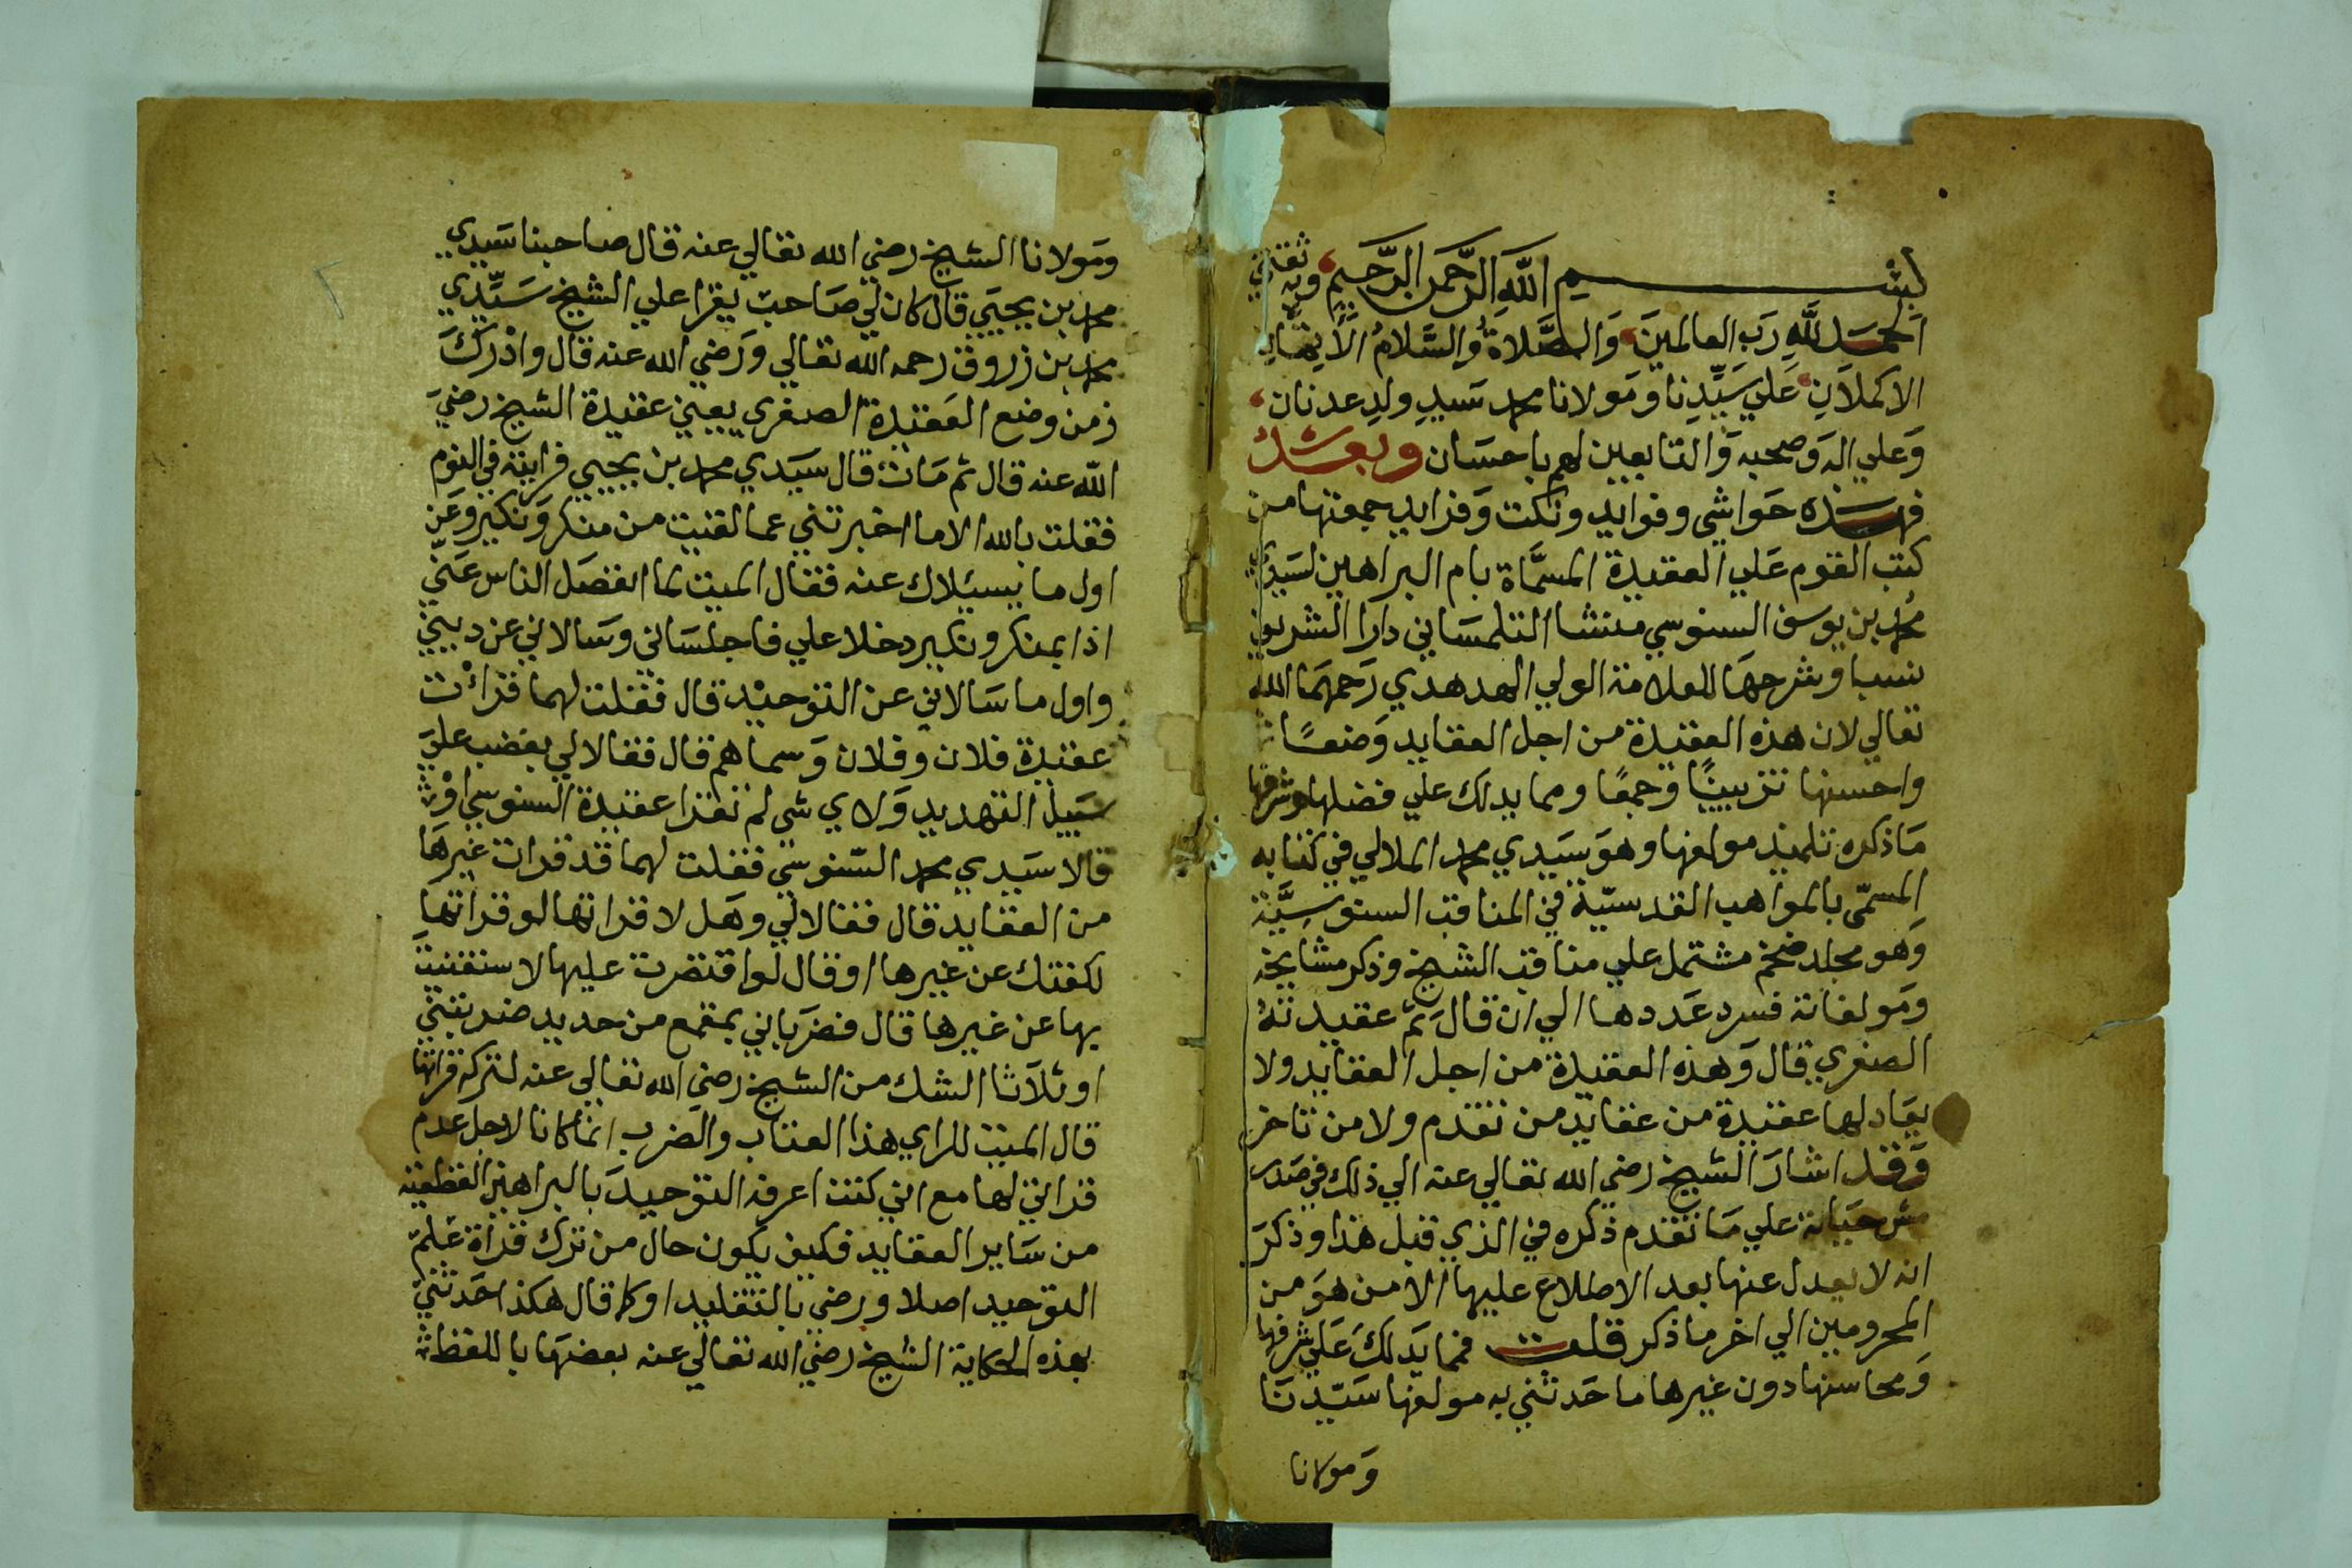 بسم الله الرحمن الرحيم وبه ثقتي
الحَمدَ للّهِ رَبّ العالمينَ وَالصَّلاةُ وَالسَّلامُ الأَتِمَّانِ
الاكملاَنِ عَلي سَيِّدِنا ومَولانا محمد سَيدِ ولدِ عدنان
وَعلي اله وَصحبه وَالتابعين لهم باحسَان وبعد
فهذه حَواشي وفوايد ونكت وَفرايد جمعتها من
كتب القوم عَلي العقيدة المسمَّاة بام البراهين لسَيدي
محمد بن يوسف السنوسي منشا التلمسَاني دارا الشريف
نسبا وشرحهَا للعلامة الولي الهدهدي رَحمهَما الله
تعالي لان هذه العقيدة من اجل العقايد وَضعًا
واحسنها تزيينًا وَجمعًا ومما يدلك علي فضلها وشرفها
مَا ذكره تلميذ مولفها وهوَ سَيدي محمد الملالي في كتابه
المسمّى بالمواهب القدسيّة في المناقب السنوسِيَّة
وَهو مجلد ضخم مشتمل علي مناقب الشيخ وذكر مشايخه
ومَولفاته فسرد عَددها الي ان قال ثم عقيدته
الصغري قال وَهذه العقيدة من اجل العقايد ولا
يعَادلها عقيدة من عقايد من تقدم ولا من تاخر
وَقد اشارَ الشيخ رضي الله تعالي عنه الي ذلك في صَدر
شرحه علي مَا تقدم ذكره في الذي قبل هذا وذكرَ
انه لا يعدل عنها بعد الاطلاع عليها الا من هوَ من
المحرومين الي اخر ما ذكر قلت فمما يَدلكَ عَلي شرفها
وَمحاسنها دون غيرها ما حَدثني به مولفها سَيّدنَا
وَمولانا
ومَولانا الشيخ رضي الله تعالي عنه قال صاحبنا سَيدي
محمد بن يحيَي قال كان لي صَاحب يقرا علي الشيخ سَيّدي
محمد بن زروق رحمه الله تعالي ورَضي الله عنه قال وادْركَ
زمن وضع العَقيدة الصغري يعني عقيدة الشيخ رضيَ
اللّه عنه قال ثم مَات قال سَيَدي محمد بن يحيي فرايته في النوم
فقلت بالله الا ما اخبرتني عما لقيت من منكر وَنكير وعَن
اول ما يسيلاك عنه فقال الميت لما انفصَل الناس عَنّي
اذا بمنكر ونكير دخلا علي فاجلسَاني وسَالاني عن ديني
واول ما سَالاني عن التوحيْد قال فقلت لهما قرأت
عقيدة فلان وفلان وَسماهم قال فقالا لي بغضب عليَ
سَبيل التهديد وَلاي شي لم تقرا عقيدة السنوسي اوْ
قالا سَيدي محمد السّنوسي فقلت لهما قد قرات غيرهَا
من العقايد قال فقالا لي وهَل لا قراتها لو قراتها
لكفتك عن غيرها او قال لو اقتصرت عليها لاستغنيت
بها عن غيرها قال فضرَباني بمقمع من حديد ضربتين
او ثلاَثا الشك من الشيخ رضي الله تعالي عنه لترك قراتها
قال الميت للراي هذا العتاب والضرب انما كانا لاجل عدم
قراتي لها مع اني كنت اعرف التوحيدَ بالبراهين القطعيه
من سَاير العقايد فكيف يكون حال من ترك قراة عْلم
التوحيد اصلا ورضي بالتقليد او كما قال هكذا حَدثني
بهذه الحكاية الشيخ رضي الله تعالي عنه بعضهَا باللفظ